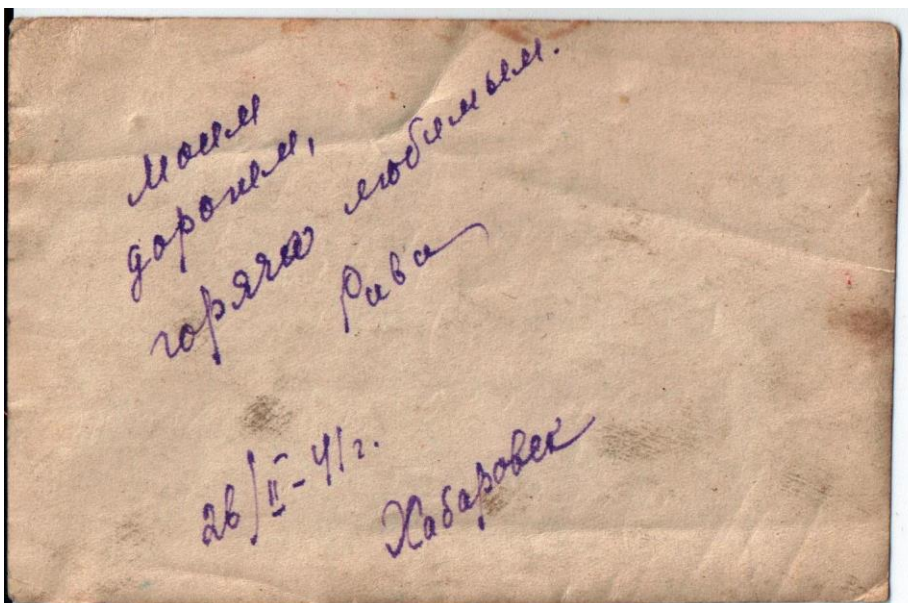 моим
дорогим,
горячо любимым.
Рава
26/II-41г.
Хабаровск